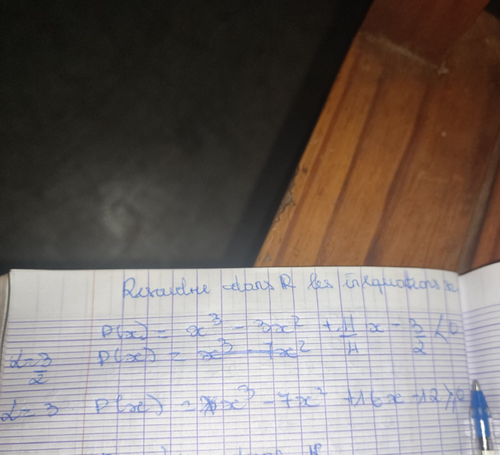 Resoudre dans R les inequations
P(x) = x³ - 3x² + 11/4 x - 3/2 < 0
α = 3/2 P(x) = x³ - 7x²
α = 3 P(x) = x³ - 7x² + 16x - 12 ≥ 0